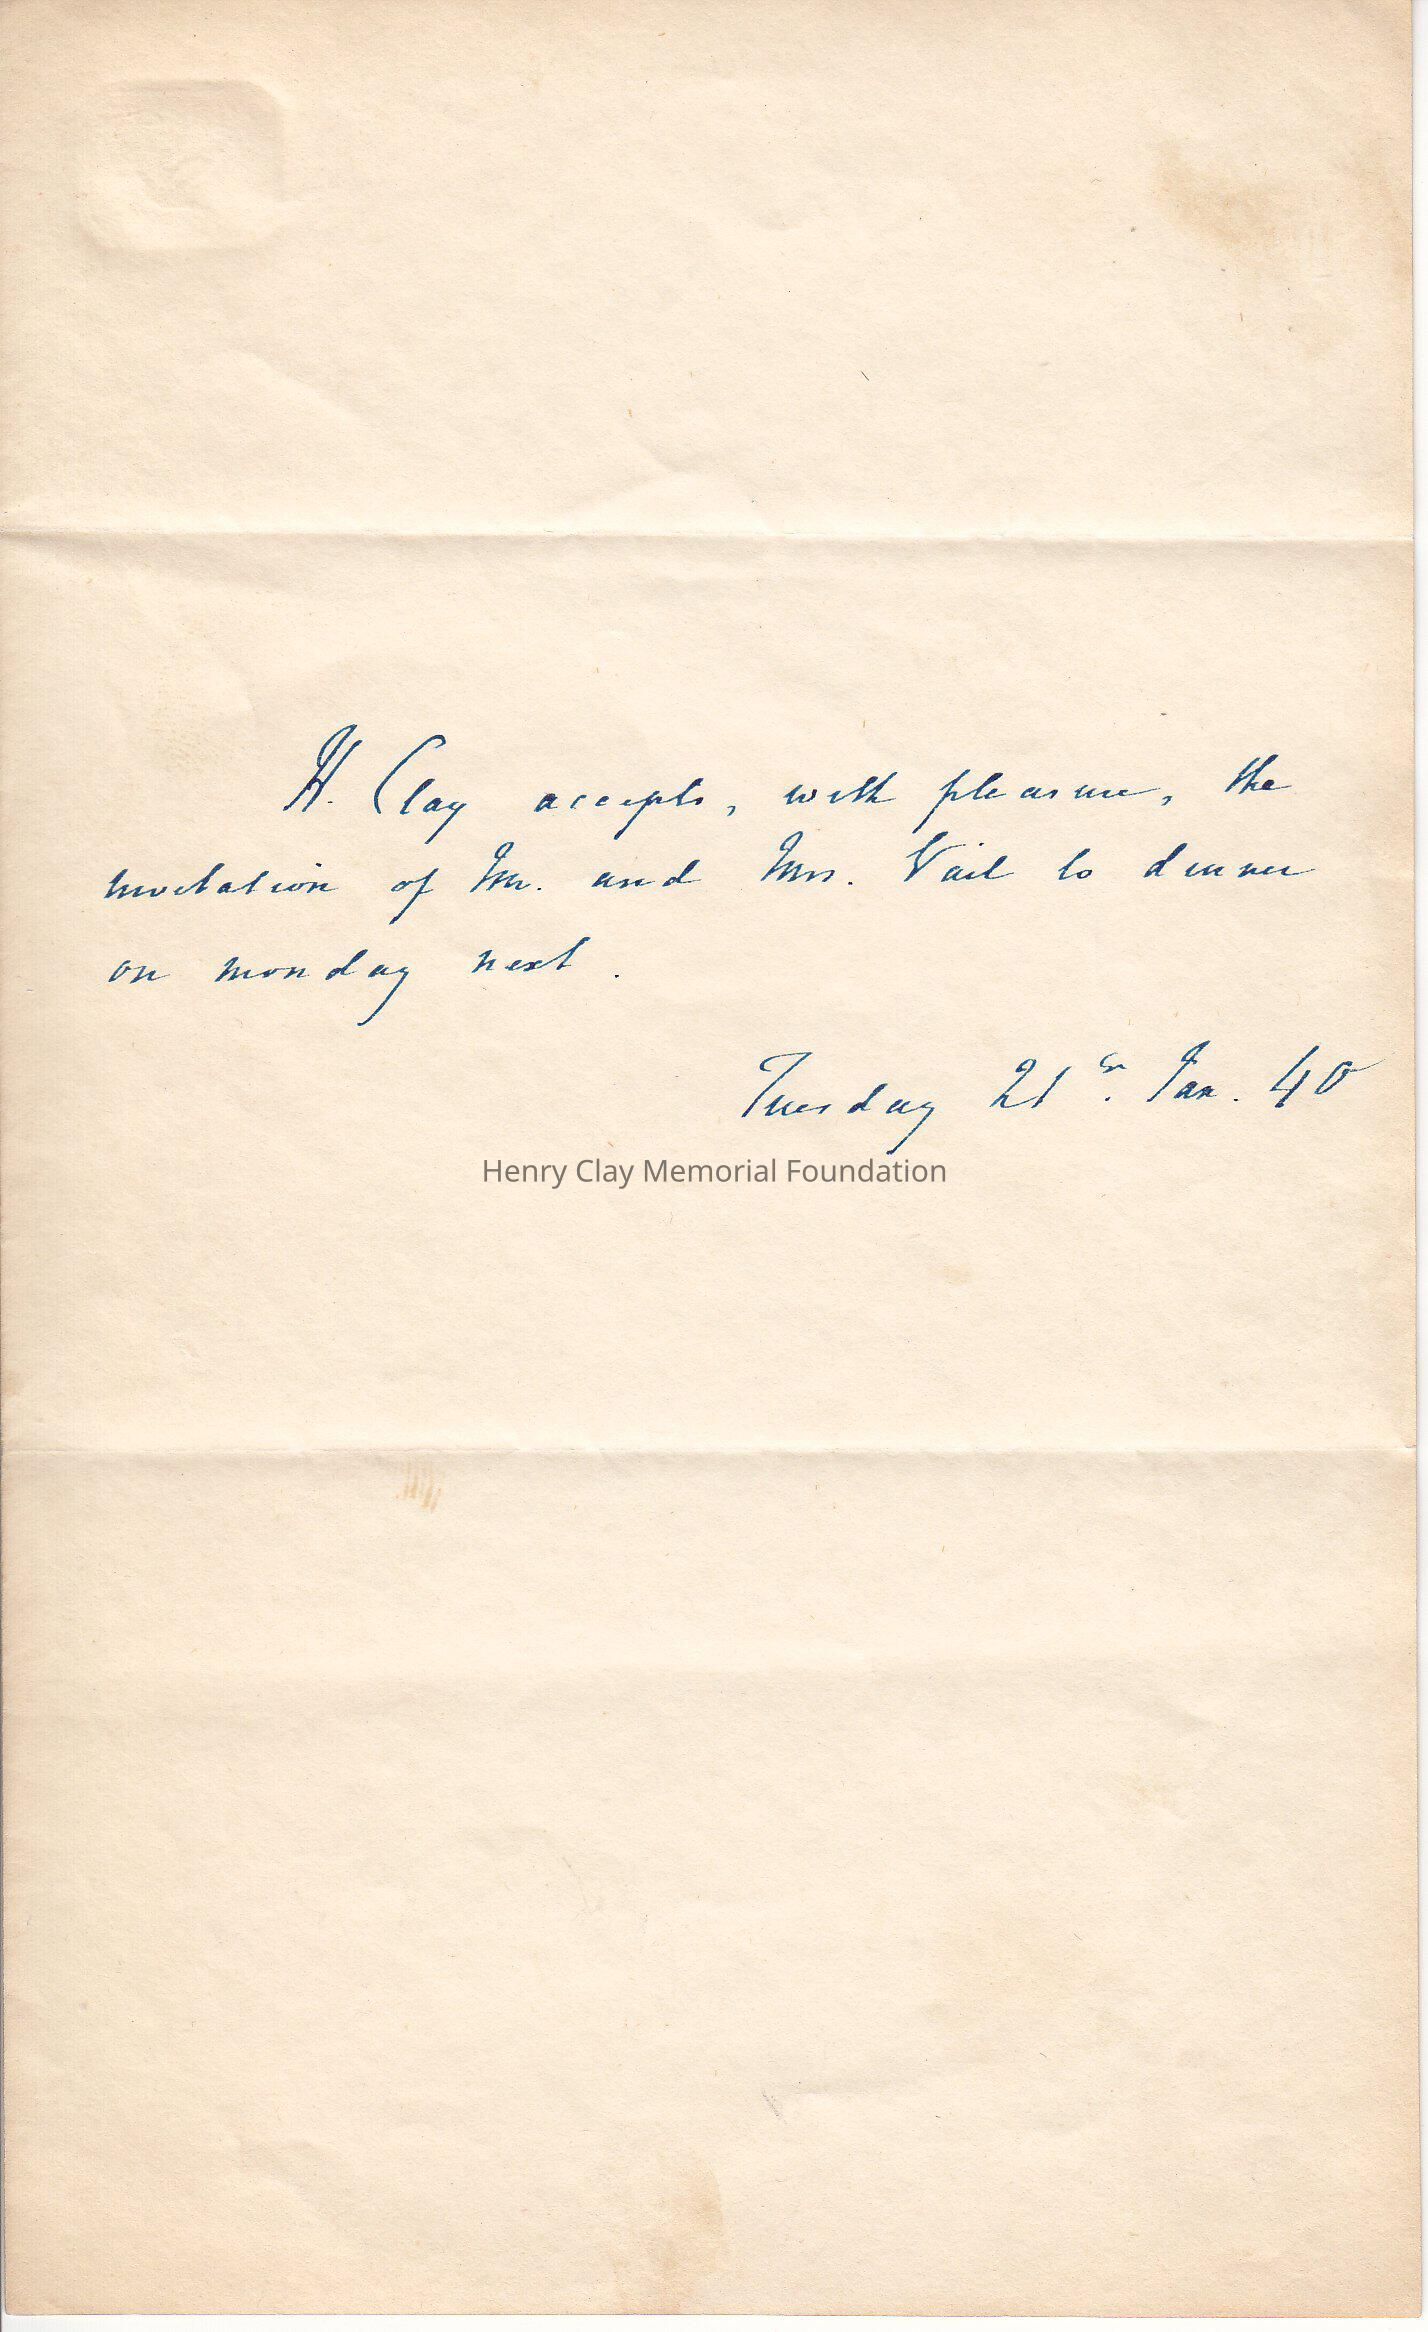 H. Clay accepts, with pleasure, the
invitation of Mr. and Mrs. Vail to dinner
on monday next.
Tuesday 21st. Jan. 40
Henry Clay Memorial Foundation